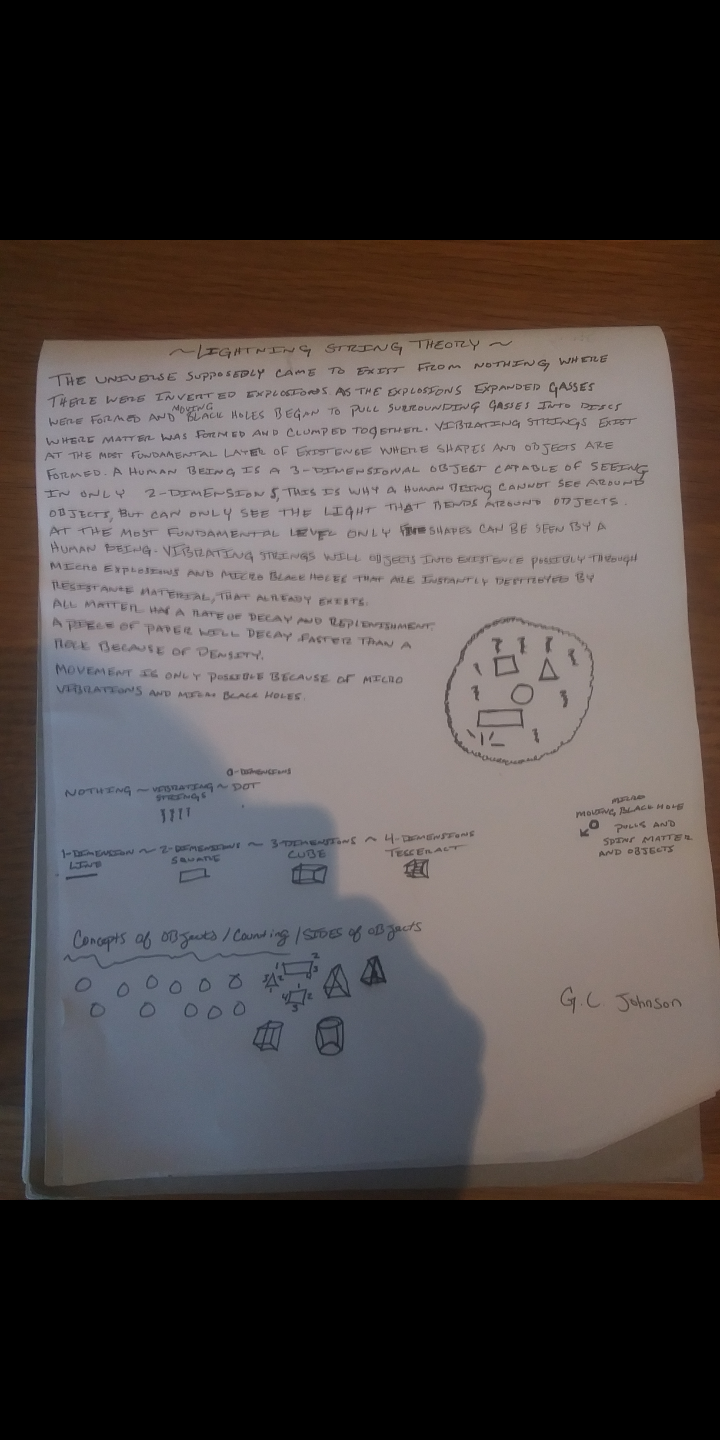 ~LIGHTNING STRING THEORY~
THE UNIVERSE SUPPOSEDLY CAME TO EXIST FROM NOTHING WHERE
THERE WERE INVERTED EXPLOSIONS. AS THE EXPLOSIONS EXPANDED GASSES
WERE FORMED AND MOVING BLACK HOLES BEGAN TO PULL SURROUNDING GASSES INTO DISCS
WHERE MATTER WAS FORMED AND CLUMPED TOGETHER. VIBRATING STRINGS EXIST
AT THE MOST FUNDAMENTAL LAYER OF EXISTENCE WHERE SHAPES AND OBJECTS ARE
FORMED. A HUMAN BEING IS A 3-DIMENSIONAL OBJECT CAPABLE OF SEEING
IN ONLY 2-DIMENSIONS, THIS IS WHY A HUMAN BEING CANNOT SEE AROUND
OBJECTS, BUT CAN ONLY SEE THE LIGHT THAT BENDS AROUND OBJECTS.
AT THE MOST FUNDAMENTAL LEVEL ONLY SHAPES CAN BE SEEN BY A
HUMAN BEING. VIBRATING STRINGS WILL OBJECTS INTO EXISTENCE POSSIBLY THROUGH
MICRO EXPLOSIONS AND MICRO BLACK HOLES THAT ARE INSTANTLY DESTROYED BY
RESISTANCE MATERIAL, THAT ALREADY EXISTS.
ALL MATTER HAS A RATE OF DECAY AND REPLENISHMENT.
A PIECE OF PAPER WILL DECAY FASTER THAN A
ROCK BECAUSE OF DENSITY.
MOVEMENT IS ONLY POSSIBLE BECAUSE OF MICRO
VIBRATIONS AND MICRO BLACK HOLES.
0-DIMENSIONS
NOTHING ~ VIBRATING ~ DOT
STRINGS
MICRO
MOVING BLACK HOLE
PULLS AND
SPINS MATTER
AND OBJECTS
1-DIMENSION ~ 2-DIMENSIONS ~ 3-DIMENSIONS ~ 4-DIMENSIONS
LINE SQUARE CUBE TESSERACT
Concepts of OBJects / Counting / SIDES of OBJects
1 2 3
1 2 3
1 2 3 4
G.C. Johnson